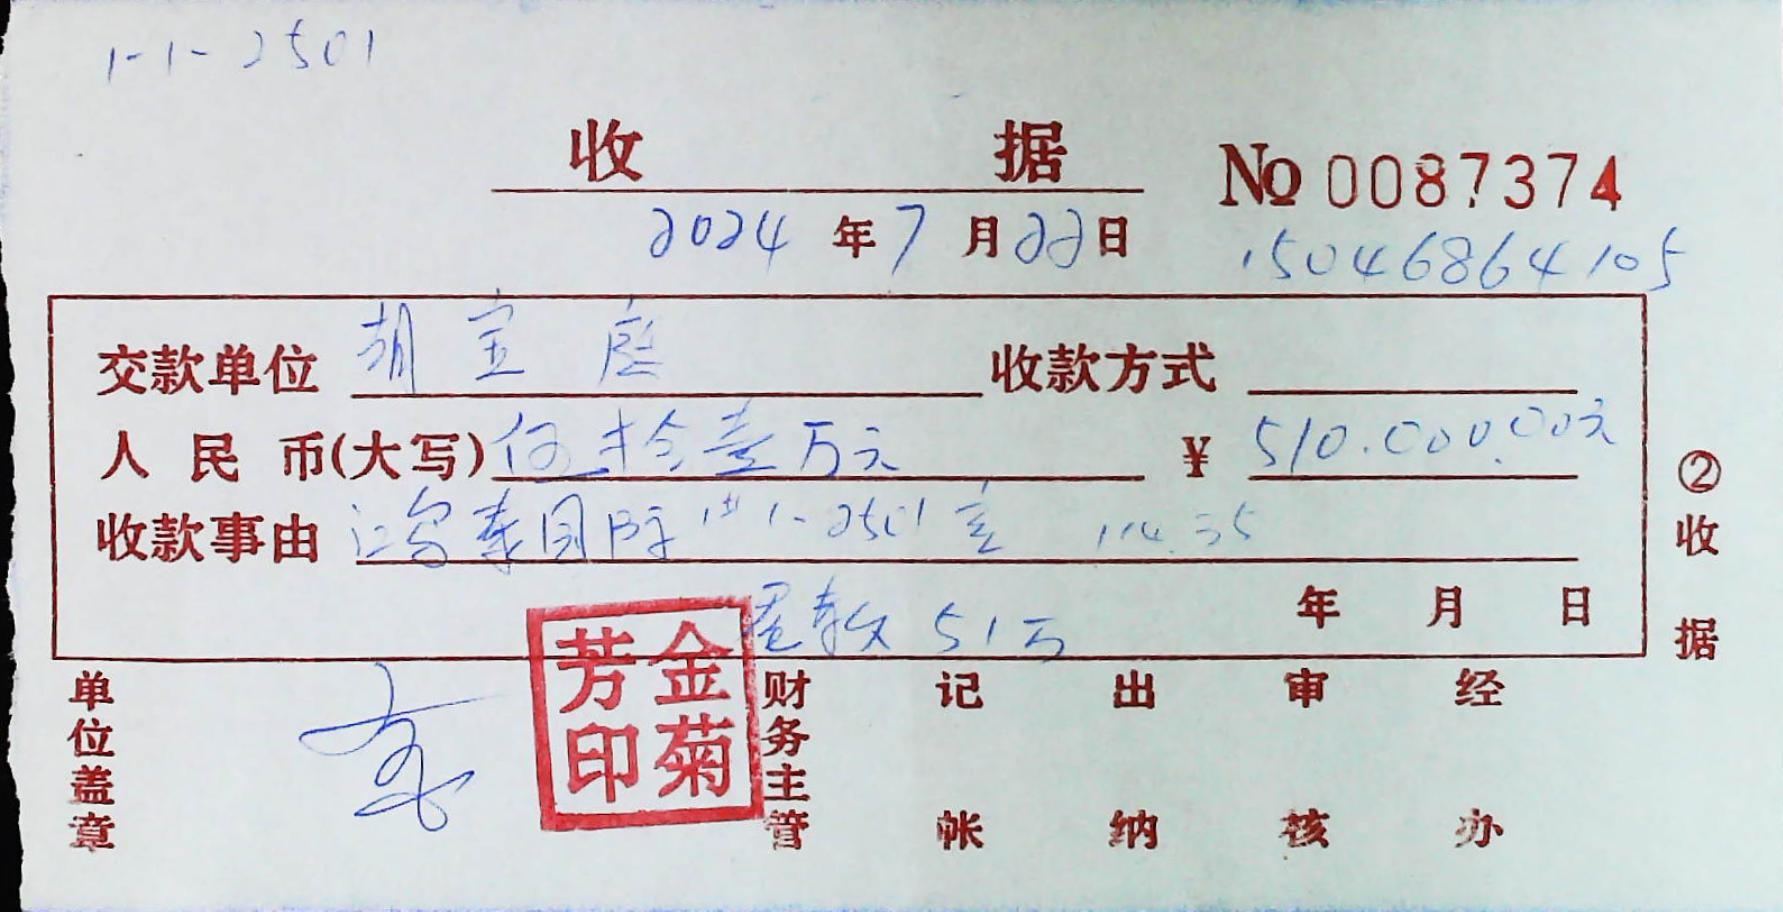 1-1-2501
收 据 No 0087374
2024 年 7 月 22 日 15046864105
交款单位 胡宝庭 收款方式
人民币(大写) 伍拾壹万元 ¥ 510.000.00元
收款事由 鸿泰国际 1# 1-2501室 114.35
房款 51万 年 月 日
②收据
单位盖章
金菊芳印
财务主管 记帐 出纳 审核 经办